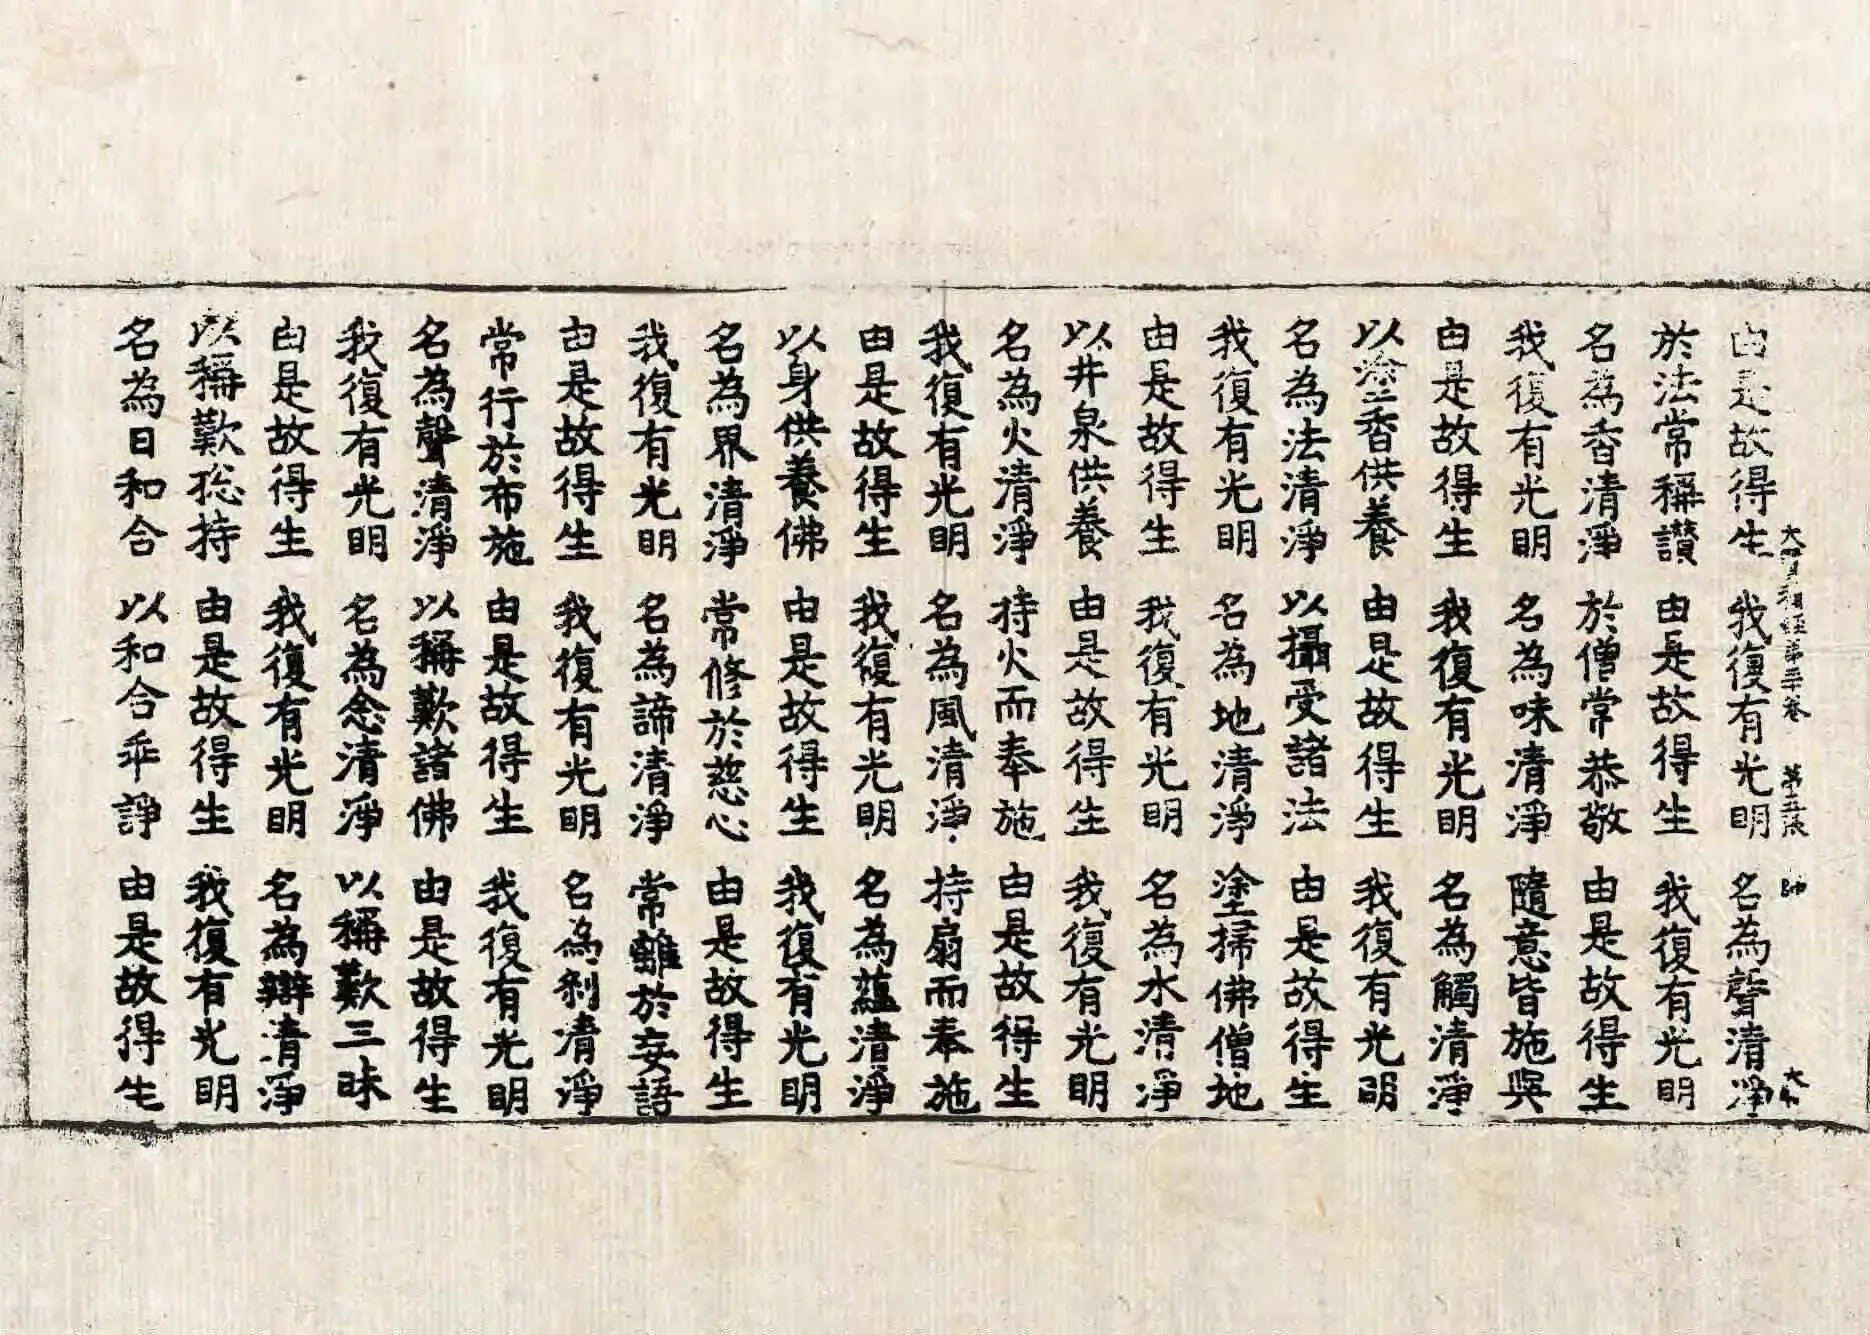 大寶積經第三十卷 第五張 帥 大
由是故得生 我復有光明 名為聲清淨
於法常稱讚 由是故得生 我復有光明
名為香清淨 於僧常恭敬 由是故得生
我復有光明 名為味清淨 隨意皆施與
由是故得生 我復有光明 名為觸清淨
以塗香供養 由是故得生 我復有光明
名為法清淨 以攝受諸法 由是故得生
我復有光明 名為地清淨 塗掃佛僧地
由是故得生 我復有光明 名為水清淨
以井泉供養 由是故得生 我復有光明
名為火清淨 持火而奉施 由是故得生
我復有光明 名為風清淨 持扇而奉施
由是故得生 我復有光明 名為蘊清淨
以身供養佛 由是故得生 我復有光明
名為界清淨 常修於慈心 由是故得生
我復有光明 名為諦清淨 常離於妄語
由是故得生 我復有光明 名為剎清淨
常行於布施 由是故得生 我復有光明
名為聲清淨 以稱歎諸佛 由是故得生
我復有光明 名為念清淨 以稱歎三昧
由是故得生 我復有光明 名為辯清淨
以稱歎捴持 由是故得生 我復有光明
名為日和合 以和合乖諍 由是故得生